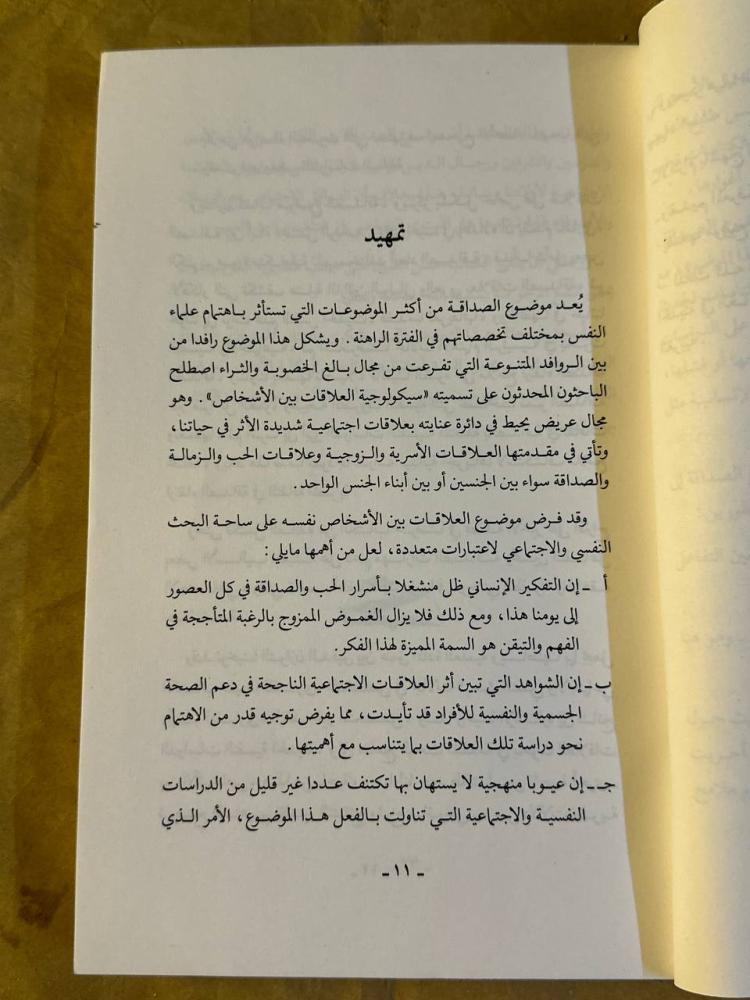 تمهيد
يُعد موضوع الصداقة من أكثر الموضوعات التي تستأثر باهتمام علماء
النفس بمختلف تخصصاتهم في الفترة الراهنة. ويشكل هذا الموضوع رافدا من
بين الروافد المتنوعة التي تفرعت من مجال بالغ الخصوبة والثراء اصطلح
الباحثون المحدثون على تسميته «سيكولوجية العلاقات بين الأشخاص». وهو
مجال عريض يحيط في دائرة عنايته بعلاقات اجتماعية شديدة الأثر في حياتنا،
وتأتي في مقدمتها العلاقات الأسرية والزوجية وعلاقات الحب والزمالة
والصداقة سواء بين الجنسين أو بين أبناء الجنس الواحد.
وقد فرض موضوع العلاقات بين الأشخاص نفسه على ساحة البحث
النفسي والاجتماعي لاعتبارات متعددة، لعل من أهمها مايلي:
أ - إن التفكير الإنساني ظل منشغلا بأسرار الحب والصداقة في كل العصور
إلى يومنا هذا، ومع ذلك فلا يزال الغموض الممزوج بالرغبة المتأججة في
الفهم والتيقن هو السمة المميزة لهذا الفكر.
ب - إن الشواهد التي تبين أثر العلاقات الاجتماعية الناجحة في دعم الصحة
الجسمية والنفسية للأفراد قد تأيدت، مما يفرض توجيه قدر من الاهتمام
نحو دراسة تلك العلاقات بما يتناسب مع أهميتها.
جـ - إن عيوبا منهجية لا يستهان بها تكتنف عددا غير قليل من الدراسات
النفسية والاجتماعية التي تناولت بالفعل هذا الموضوع، الأمر الذي
- ١١ -